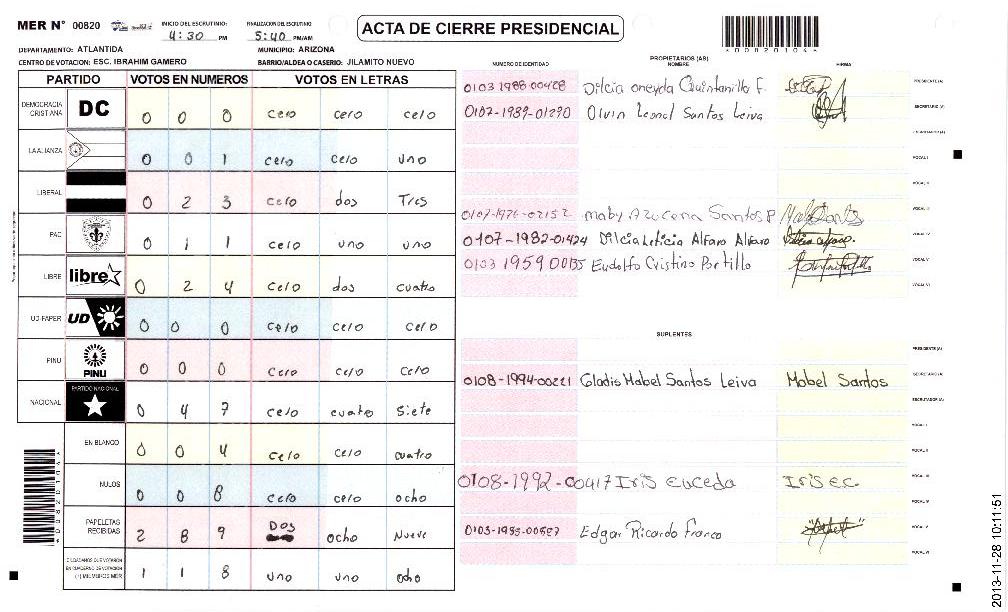 MER N° 00820
INICIO DEL ESCRUTINIO
4:30 PM
FINALIZACION DEL ESCRUTINIO
5:40 PM/AM
ACTA DE CIERRE PRESIDENCIAL
*00820104*
DEPARTAMENTO: ATLANTIDA
MUNICIPIO: ARIZONA
CENTRO DE VOTACION: ESC. IBRAHIM GAMERO
BARRIO/ALDEA O CASERIO: JILAMITO NUEVO
PARTIDO VOTOS EN NUMEROS VOTOS EN LETRAS
DEMOCRACIA CRISTIANA DC 0 0 0 cero cero celo
LA ALIANZA 0 0 1 celo celo uno
LIBERAL 0 2 3 celo dos Tres
PAC 0 1 1 celo uno uno
LIBRE libre 0 2 4 celo dos cuatro
UD-FAPER UD 0 0 0 celo celo celo
PINU PINU 0 0 0 celo celo celo
NACIONAL PARTIDO NACIONAL 0 4 7 celo cuatro siete
EN BLANCO 0 0 4 celo celo cuatro
NULOS 0 0 8 celo celo ocho
PAPELETAS RECIBIDAS 2 8 9 DOS ocho Nueve
CIUDADANOS QUE VOTARON EN CUADERNO DE VOTACION (+) MIEMBROS MER 1 1 8 uno uno ocho
PROPIETARIOS (AS)
NUMERO DE IDENTIDAD NOMBRE FIRMA
0103 1988-00428 Dilcia oneyda Quintanilla F. PRESIDENTE(A)
0107-1989-01290 Olvin Leonel Santos Leiva SECRETARIO (A)
ESCRUTADOR (A)
VOCAL I
VOCAL II
0107-1976-02152 Maby Azucena Santos P VOCAL III
0107-1982-01424 Dilcia Leticia Alfaro Alfaro VOCAL IV
0103 1959 00135 Eudolfo Cristino Portillo VOCAL V
VOCAL VI
SUPLENTES
PRESIDENTE (A)
0108-1994-00221 Gladis Mabel Santos Leiva Mabel Santos SECRETARIO (A)
ESCRUTADOR (A)
VOCAL I
VOCAL II
0108-1992-00417 Iris Euceda Iris E.C. VOCAL III
VOCAL IV
Edgar Ricardo Franco VOCAL V
VOCAL VI
2013-11-28 10:11:51